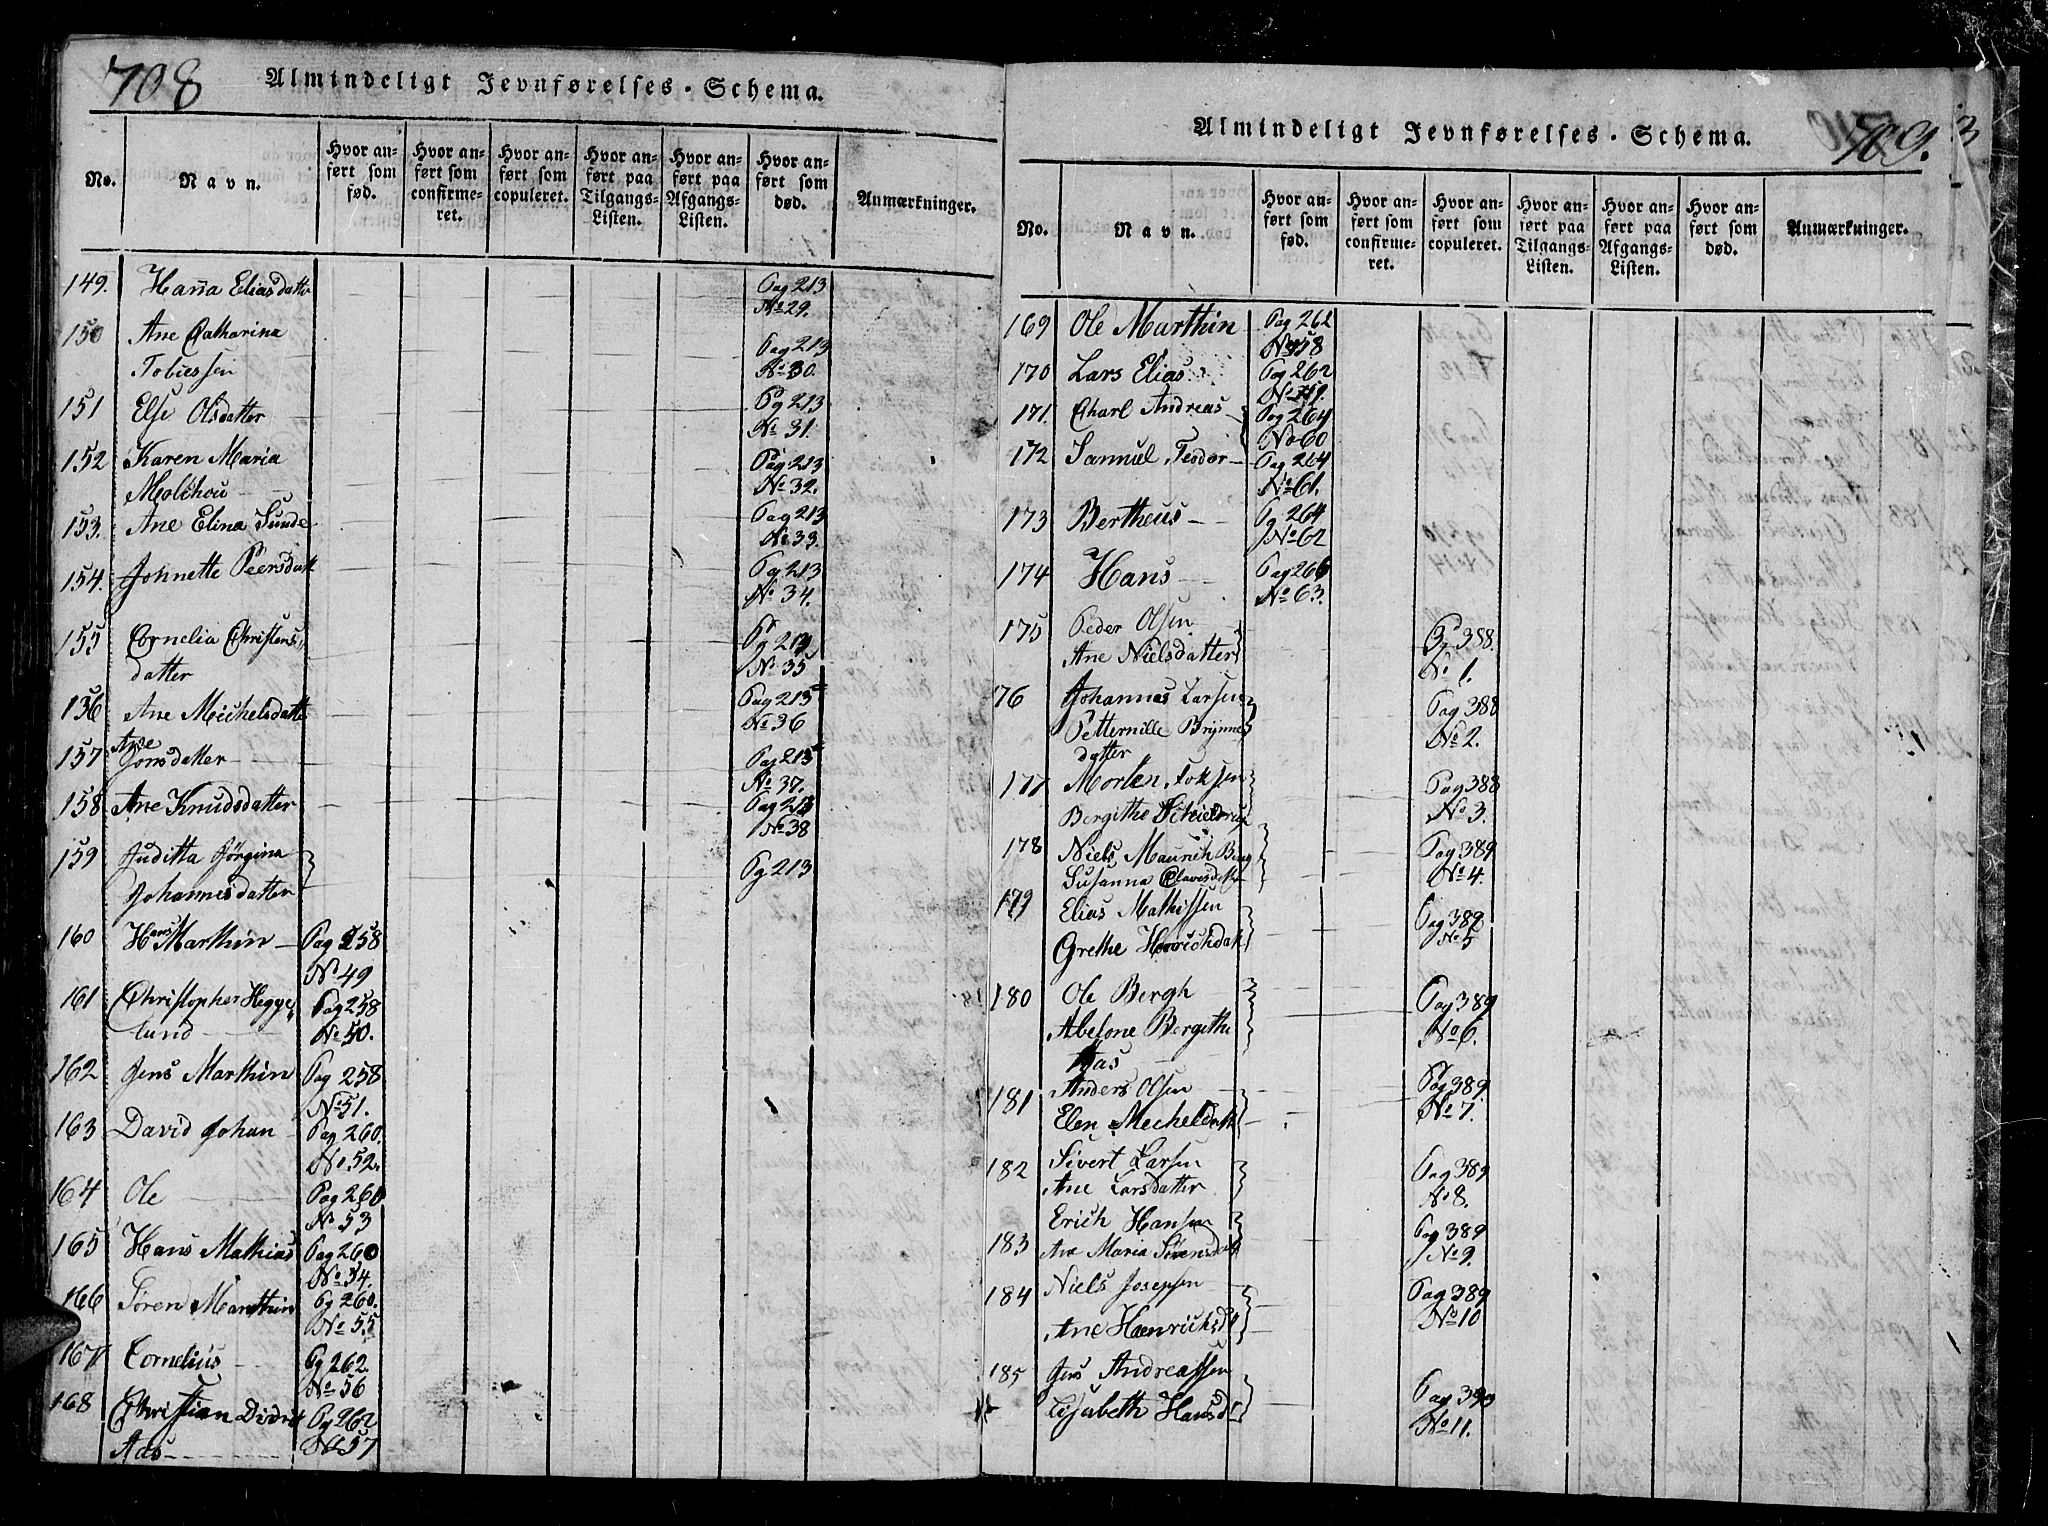 708
Almindeligt Jevnførelses-Schema.
No. Navn. Hvor anført som fød. Hvor anført som confirmeret. Hvor anført som copuleret. Hvor anført paa Tilgangs-Listen. Hvor anført paa Afgangs-Listen. Hvor anført som død. Anmærkninger.
149. Hanna Eliasdatter Pag 213
No 29.
150 Ane Catharina
Tobiessen Pag 213
No 30.
151 Else Olsdatter Pg 213
No 31.
152 Karen Maria Pag 213
Moltzhou No 32.
153. Ane Elina Sunde Pag 213
No 33.
154. Johnette Peersdatt Pag 213
No 34.
155 Cornelia Christens
datter Pg
No 35
156 Ane Michelsdatter Pag 215
No 36
157 Ane
Jonsdatter Pag 215
No 37.
158 Ane Knudsdatter Pag 213
No 38
159 Juditta Jörgina
Johannesdatter Pg 213
160 Hans Marthin Pag 258
No 49
161 Christopher Hegge
lund Pag 258
No 50.
162 Jens Marthin Pag 258
No 51.
163 David Johan Pag 260.
No 52.
164 Ole Pag 260
No 53
165 Hans Mathias Pag 260
No 54.
166 Sören Marthin Pg 260.
No 55
167 Cornelius Pg 262.
No 56
168 Christian Didrik Pg 262
Aas No 57
709.
Almindeligt Jevnførelses-Schema.
No. Navn. Hvor anført som fød. Hvor anført som confirmeret. Hvor anført som copuleret. Hvor anført paa Tilgangs-Listen. Hvor anført paa Afgangs-Listen. Hvor anført som død. Anmærkninger.
169 Ole Marthin Pag 262
No 58
170 Lars Elias Pag 262
No 59.
171. Charl Andreas Pag 264
No 60
172 Samuel Teodor Pag 264
No 61.
173 Bertheus Pg 264
No 62
174 Hans Pag 266
No 63.
175 Peder Olsen
Ane Nielsdatter Pg 388.
No 1.
76 Johannes Larsen Pag 388
Petternille Brynnes No 2.
datter
177 Morten Pag 388
Bergithe No 3.
178 Niels Maurith Berg Pag 389
Susanna No 4.
179 Elias Mathissen Pag 389
Grethe No 5
180 Ole Bergh Pag 389
Abelone Bergithe No 6.
Aas
181 Anders Olsen Pag 389.
Elen Mecheldatt No 7.
182 Sivert Larsen Pag 389
Ane Larsdatter No 8.
183 Erich Hansen Pag 389
Ane Maria Sörensdatt No 9.
184 Niels Josepsen Pag 389
Ane Haenrichsd No 10
185 Jens Andreassen
Lisabeth Hansd Pag 390
No 11.